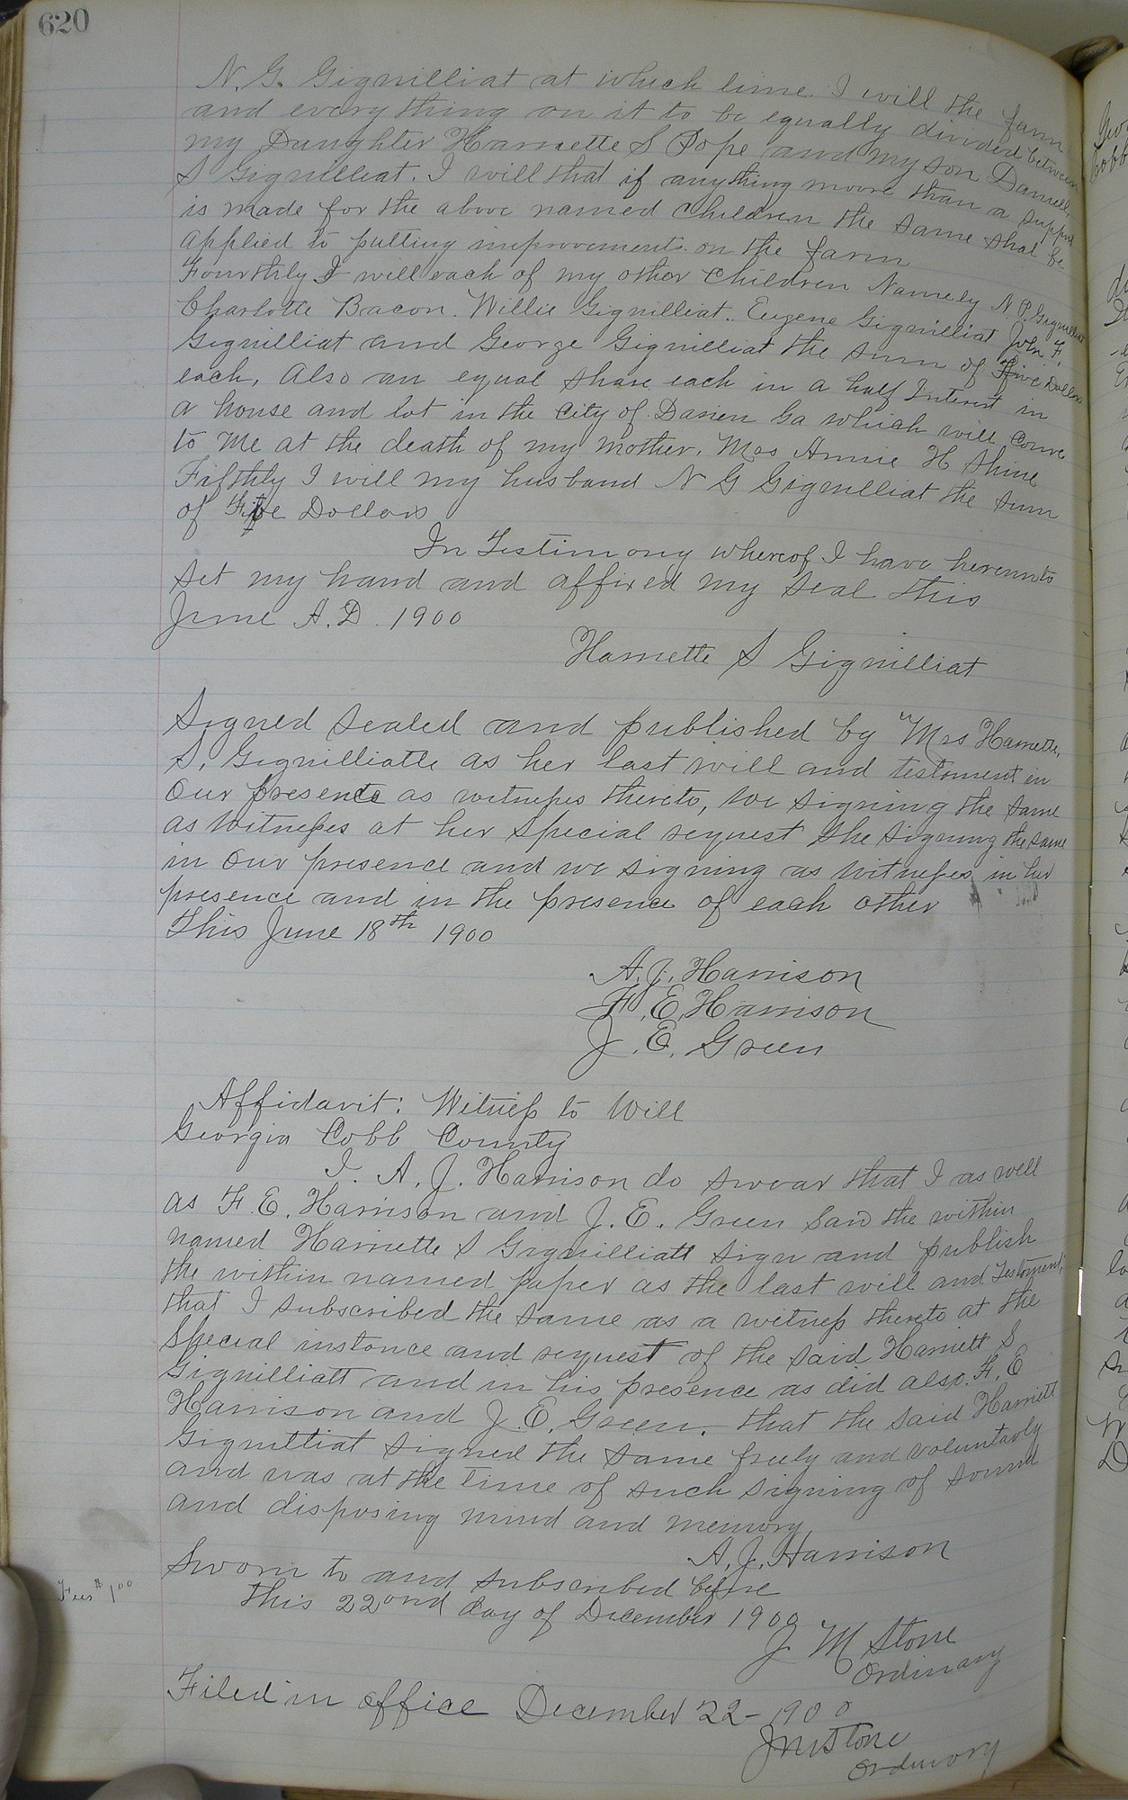 620
N. G. Gignilliat at which time I will the farm
and everything on it to be equally divided between
my Daughter Harriette S Pope and my son Daniel
S Gignilliat. I will that if anything moore than a support
is made for the above named Children the same shal be
applied to putting improvements on the farm
Fourthly I will each of my other Children Namely N. P. Gignilliat
Charlotte Bacon. Willie Gignilliat. Eugene Gignilliat John F.
Gignilliat and George Gignilliat the sum of Five Dollars
each, Also an equal share each in a half Interest in
a house and lot in the City of Darien Ga which will come
to Me at the death of my Mother, Mrs Annie H Shine
Fifthly I will my husband N G Gignilliat the sum
of Five Dollars
In Testimony whereof I have hereunto
set my hand and affixed my seal this
June A.D. 1900
Harriette S Gignilliat
Signed sealed and published by Mrs Harriette,
S. Gignilliatte as her last will and testament in
Our presence as witness thereto, we signing the same
as Witnesses at her special request She signing the same
in Our presence and we signing as witnesses in her
presence and in the presence of each other
This June 18th 1900
A. J. Harrison
F. E. Harrison
J. E. Green
Affidavit: Witness to Will
Georgia Cobb County
I. A. J. Harrison do swear that I as well
as F. E. Harrison and J. E. Green saw the within
named Harriette S Gignilliatt sign and publish
the within named paper as the last will and Testament;
that I subscribed the same as a witness thereto at the
Special instance and request of the said Harriett S
Gignilliatt and in his presence as did also F. E
Harrison and J. E. Green. that the said Harriett
Gignilliat signed the same freely and voluntarly
and was at the time of such signing of sound
and disposing mind and memory
A. J. Harrison
Sworn to and subscribed before
this 22ond day of December 1900
J M Stone
Ordinary
Fees $1 00
Filed in office December 22- 1900
J M Stone
Ordinary